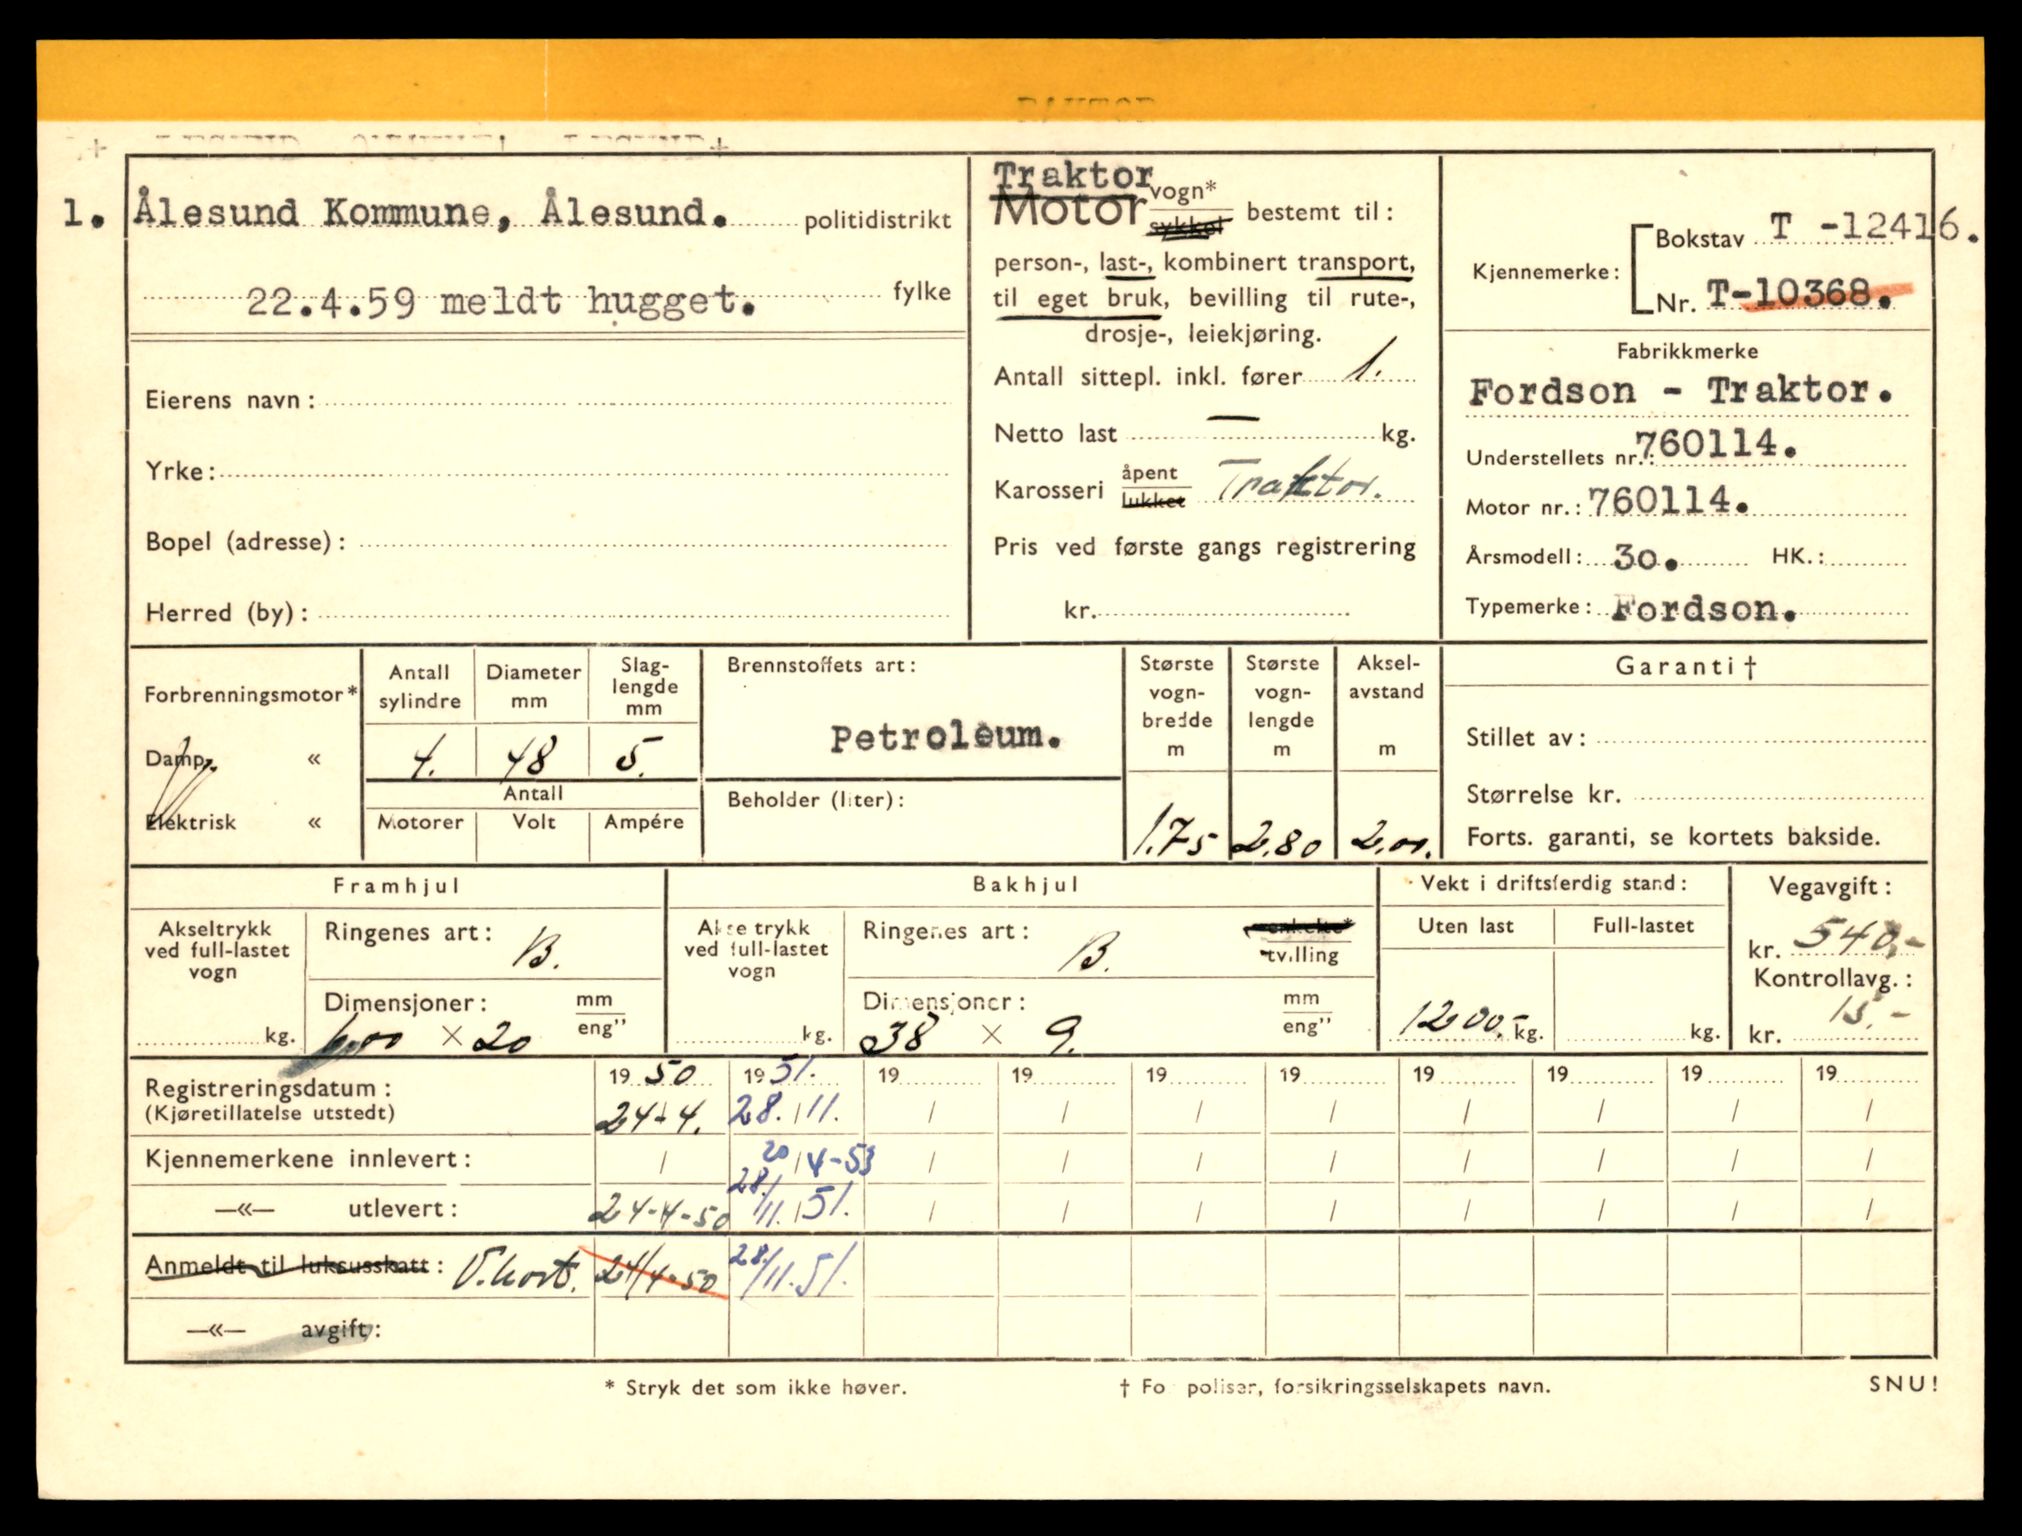 1. Ålesund Kommune, Ålesund. politidistrikt
22.4.59 meldt hugget. fylke
Eierens navn:
Yrke:
Bopel (adresse):
Herred (by):
Traktor
Motor vogn* sykkel bestemt til:
person-, last-, kombinert transport,
til eget bruk, bevilling til rute-,
drosje-, leiekjøring.
Antall sittepl. inkl. fører 1.
Netto last — kg.
Karosseri åpent lukket Traktor.
Pris ved første gangs registrering
kr.
Kjennemerke:
Bokstav T -12416.
Nr. T-10368.
Fabrikkmerke
Fordson - Traktor.
Understellets nr.: 760114.
Motor nr.: 760114.
Årsmodell: 30. HK.:
Typemerke: Fordson.
Forbrenningsmotor*
Damp. «
Elektrisk «
Antall sylindre
4.
Diameter mm
48
Slag-
lengde
mm
5.
Antall
Motorer Volt Ampére
Brennstoffets art:
Petroleum.
Beholder (liter):
Største
vogn-
bredde
m
1.75
Største
vogn-
lengde
m
2.80
Aksel-
avstand
m
2.00.
Garanti †
Stillet av:
Størrelse kr.
Forts. garanti, se kortets bakside.
Framhjul
Akseltrykk
ved full-lastet
vogn
kg.
Ringenes art: B.
Dimensjoner: mm eng”
6.00 × 20
Bakhjul
Akseltrykk
ved full-lastet
vogn
kg.
Ringenes art: B. enkelte* tvilling
Dimensjoner: mm eng”
38 × 9.
Vekt i driftsferdig stand:
Uten last Full-lastet
1200.- kg. kg.
Vegavgift:
kr. 540,-
Kontrollavg.:
kr. 15.-
Registreringsdatum: 1950 1951. 19 19 19 19 19 19 19 19
(Kjøretillatelse utstedt) 24-4. 28./11. / / / / / / / /
Kjennemerkene innlevert: / 20/4-53 / / / / / / / /
—«— utlevert: 24-4-50 28/11. 51. / / / / / / / /
Anmeldt til luksusskatt: V.kort. 24/4-50 28/11. 51.
—«— avgift:
* Stryk det som ikke høver.
† For poliser, forsikringsselskapets navn.
SNU!